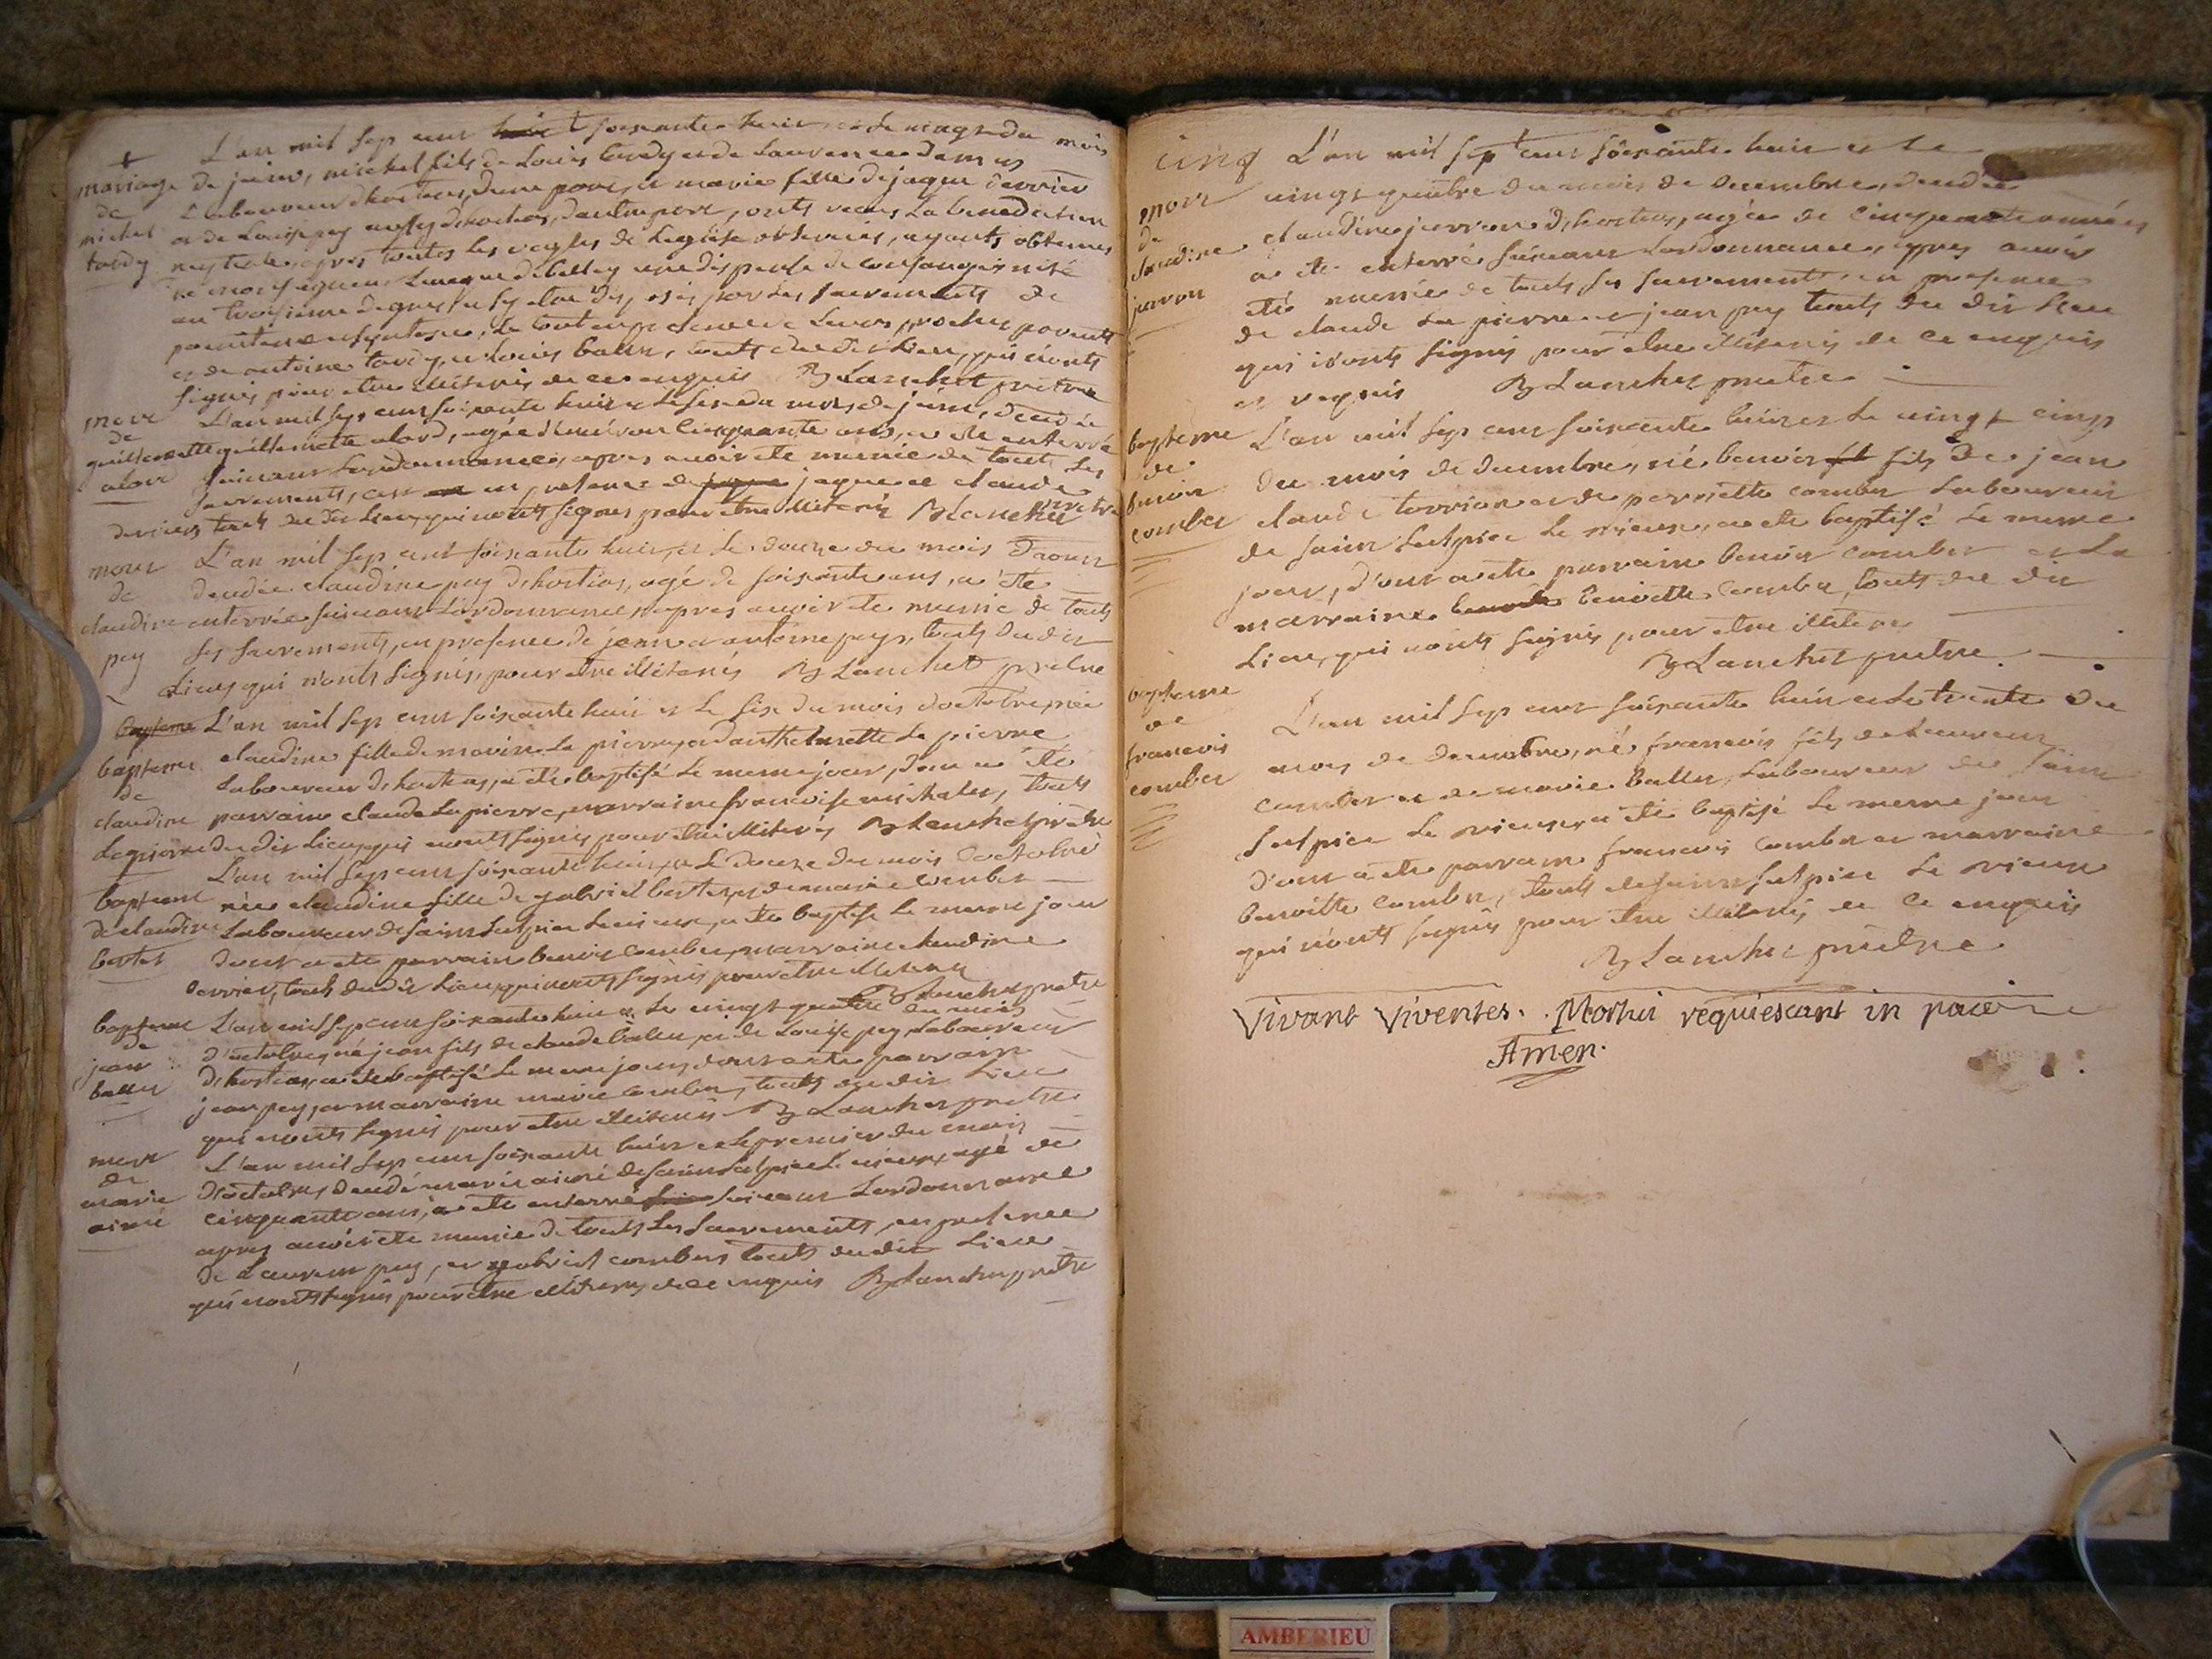 L'an mil sep cens soixante huit et le vingt du mois
mariage de juin, michel fils de Louis tardy et de Laurence
de Laboureur dhostias, dune part, et marie fille de jaque derrier
michel et de Louise pey aussy dhostias, dautre part, onts recus La benediction
tardy nuptiale, apres toutes les regles de Leglise observees, ayants obtenus
de monseigneur Leveque de belley une dispense de consanguinité
au troisieme degres par Les sacrements de
penitence Le tout en presence de Leurs proches parents
et de antoine tardy, et Louis ballet, touts du dit Lieu, qui nonts
signés pour etre illiterés de ce enquis Blanchet pretre
mort L'an mil sep cens soixante huit et Le six du mois de juin, decedée
de
guillemette guillemette alard, agée d'environ cinquante ans, a ete enterré
alard suivant Lordonnance, apres avoir ete munie de touts Les
sacrements, en presence de jaque et claude
derriers touts du dit Lieu, qui nonts signés pour etre illiterés Blanchet pretre
mort L'an mil sep cens soixante huit, et Le douze du mois d'aoust
de decedée claudine pey dhostias, agé de soixante ans, a été
claudine enterrée suivant Lordonnance, apres avoir ete munie de touts
pey Les sacrements, en presence de jean et antoine peys, touts du dit
Lieu, qui n'onts signés, pour etre illiterés Blanchet pretre
bapteme L'an mil sep cens soixante huit et Le six du mois doctobre, née
bapteme claudine fille de Lapierre, et danthelmette Lapierre
de Laboureur dhostias, a été baptisé Le meme jour, dont a été
claudine parrain claude Lapierre, marraine francoise michalet, touts
Lapierre du dit Lieu, qui nonts signés pour etre illiterés Blanchet pretre
L'an mil sep cens soixante huit, et Le douze du mois doctobre
bapteme née claudine fille de gabriel bertet, et de marie combet
de claudine Laboureur de saint sulpice Le vieux, a ete baptisé Le meme jour
bertet dont a ete parrain benoit combet, marraine claudine
derrier, touts du dit Lieu, qui nonts signés pour etre illiterés
Blanchet pretre
bapteme L'an mil sep cens soixante huit et Le vingt quatre du mois
de d'octobre, né jean fils de claude ballet, et de Louise pey, Laboureur
jean dhostias, a ete baptisé Le meme jour, dont a ete parrain
ballet jean pey, et marraine marie combet, touts du dit Lieu
qui nonts signés pour etre illiterés Blanchet pretre
mort L'an mil sep cens soixante huit et Le premier du mois
de d'octobre, decedé marie aimé de saint sulpice Le vieux, agé de
marie cinquante ans, a ete enterré suivant Lordonnance
aimé apres avoir ete munie de touts Les sacrements, en presence
de Laurent pey, et gabriel combet touts du dit Lieu
qui nonts signés pour etre illiterés de ce enquis Blanchet pretre
cinq L'an mil sept cens soixante huit et le
mort vingt quatre du mois de decembre, decedée
de
claudine claudine javron dhostias, agée de cinquante années
javron a ete enterré suivant Lordonnance, apres avoir
été munie de touts Les sacrements, en presence
de claude La pierre et jean pey touts du dit Lieu
qui nonts signés pour etre illiterés de ce enquis
et requis Blanchet pretre
bapteme L'an mil sep cens soixante huit et Le vingt cinq
de du mois de decembre, né benoit fils de jean
benoit claude terrion et de pernette combet Laboureur
combet de saint sulpice Le vieux, a ete baptisé Le meme
jour, d'ont a ete parrain benoit combet et La
marraine benoitte combet, touts du dit
Lieu, qui nonts signés pour etre illiteres
Blanchet pretre
bapteme L'an mil sep cens soixante huit et Le trente du
de mois de decembre, né francois fils de Laurent
francois combet et de marie ballet, Laboureur de saint
combet sulpice Le vieux, a été baptisé Le meme jour
d'ont a ete parrain francois combet et marraine
benoitte combet, touts de saint sulpice Le vieux
qui n'onts signés pour etre illiterés de ce enquis
Blanchet pretre
Vivant Viventes. Mortui requiescant in pace
Amen.
AMBERIEU